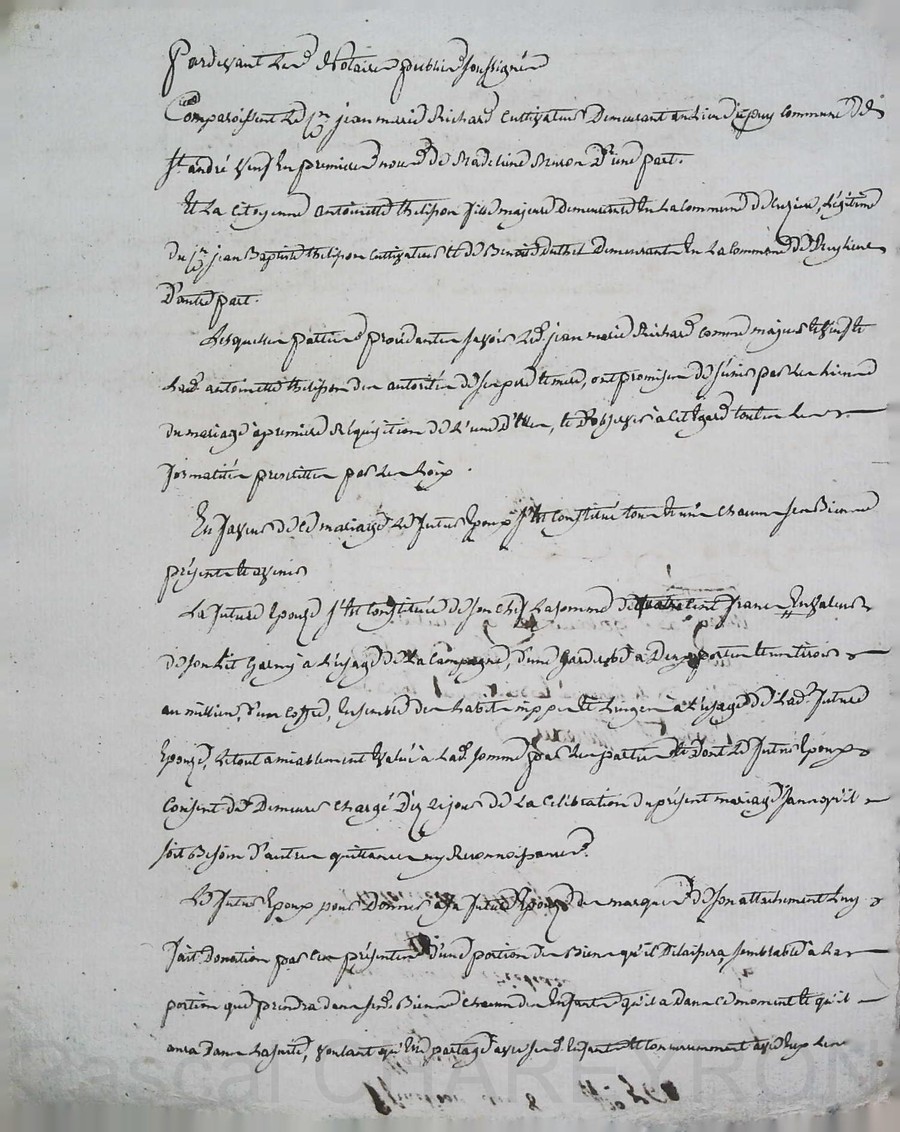 Pardevant Les Notaires publics soussignés
Comparoissent Le Cen jean marie Richard Cultivateur Demeurant au lieu du puy Commune de
St andré veuf en premieres noces de Madeleine d'une part.
Et La Citoyenne antoinette thelisson fille majeure Demeurante en La Commune de Luzieu, Légitime
du Cen jean Baptiste thelisson Cultivateur et de Benoite Demeurants en La Commune de
D'autre part.
Lesquelles parties procédantes savoir Led. jean marie Richard comme majeur et veuf et
Lad. antoinette thelisson des autorités de ses pere et mere, ont promis de s'unir par les Liens
du mariage à premiere Réquisition de L'un d'eux, et D'observer à cet égard toutes les
formalités prescrittes par les Loix.
En faveur de ce mariage Le futur Epoux s'est Constitué tous et un chacuns ses Biens
présents et avenirs
La future Epouze s'est Constituée de son chef La somme de quatre cent francs En valeur
de son Lit Garny à L'usage de La Campagne, d'une Garderobe à Deux portes et un tiroir
au millieu, d'un Coffre, Ensemble des habits nippes et Linges à L'usage de Lad. future
Epouze, Le tout amiablement Evalué à Lad. somme par Les parties et Dont Le futur Epoux
Consent de Demeurer chargé Dèz Le jour de La Célébration du présent mariage sans qu'il
soit Besoin d'autres quittances ny Reconnoissances.
Le futur Epoux pour Donner à sa future Epouze des marques de son attachement Luy
fait Donation par ces présentes d'une portion des Biens qu'il Délaissera, semblable à La
portion que prendra dans sesd. Biens chacun des Enfants qu'il a dans ce moment et qu'il
aura dans La suite, voulant qu'Elle partage avec sesd. Enfants et Concurremment avec Eux Les
Pascal CHAREYRON